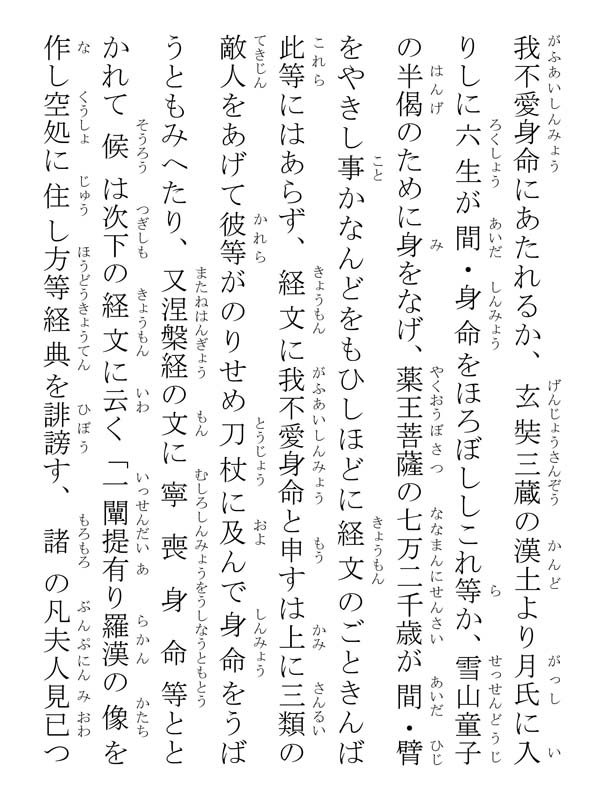 我不愛身命にあたれるか、玄奘三蔵の漢土より月氏に入
りしに六生が間・身命をほろぼししこれ等か、雪山童子
の半偈のために身をなげ、薬王菩薩の七万二千歳が間・臂
をやきし事かなんどをもひしほどに経文のごときんば
此等にはあらず、経文に我不愛身命と申すは上に三類の
敵人をあげて彼等がのりせめ刀杖に及んで身命をうば
うともみへたり、又涅槃経の文に寧喪身命等とと
かれて候は次下の経文に云く「一闡提有り羅漢の像を
作し空処に住し方等経典を誹謗す、諸の凡夫人見已つ